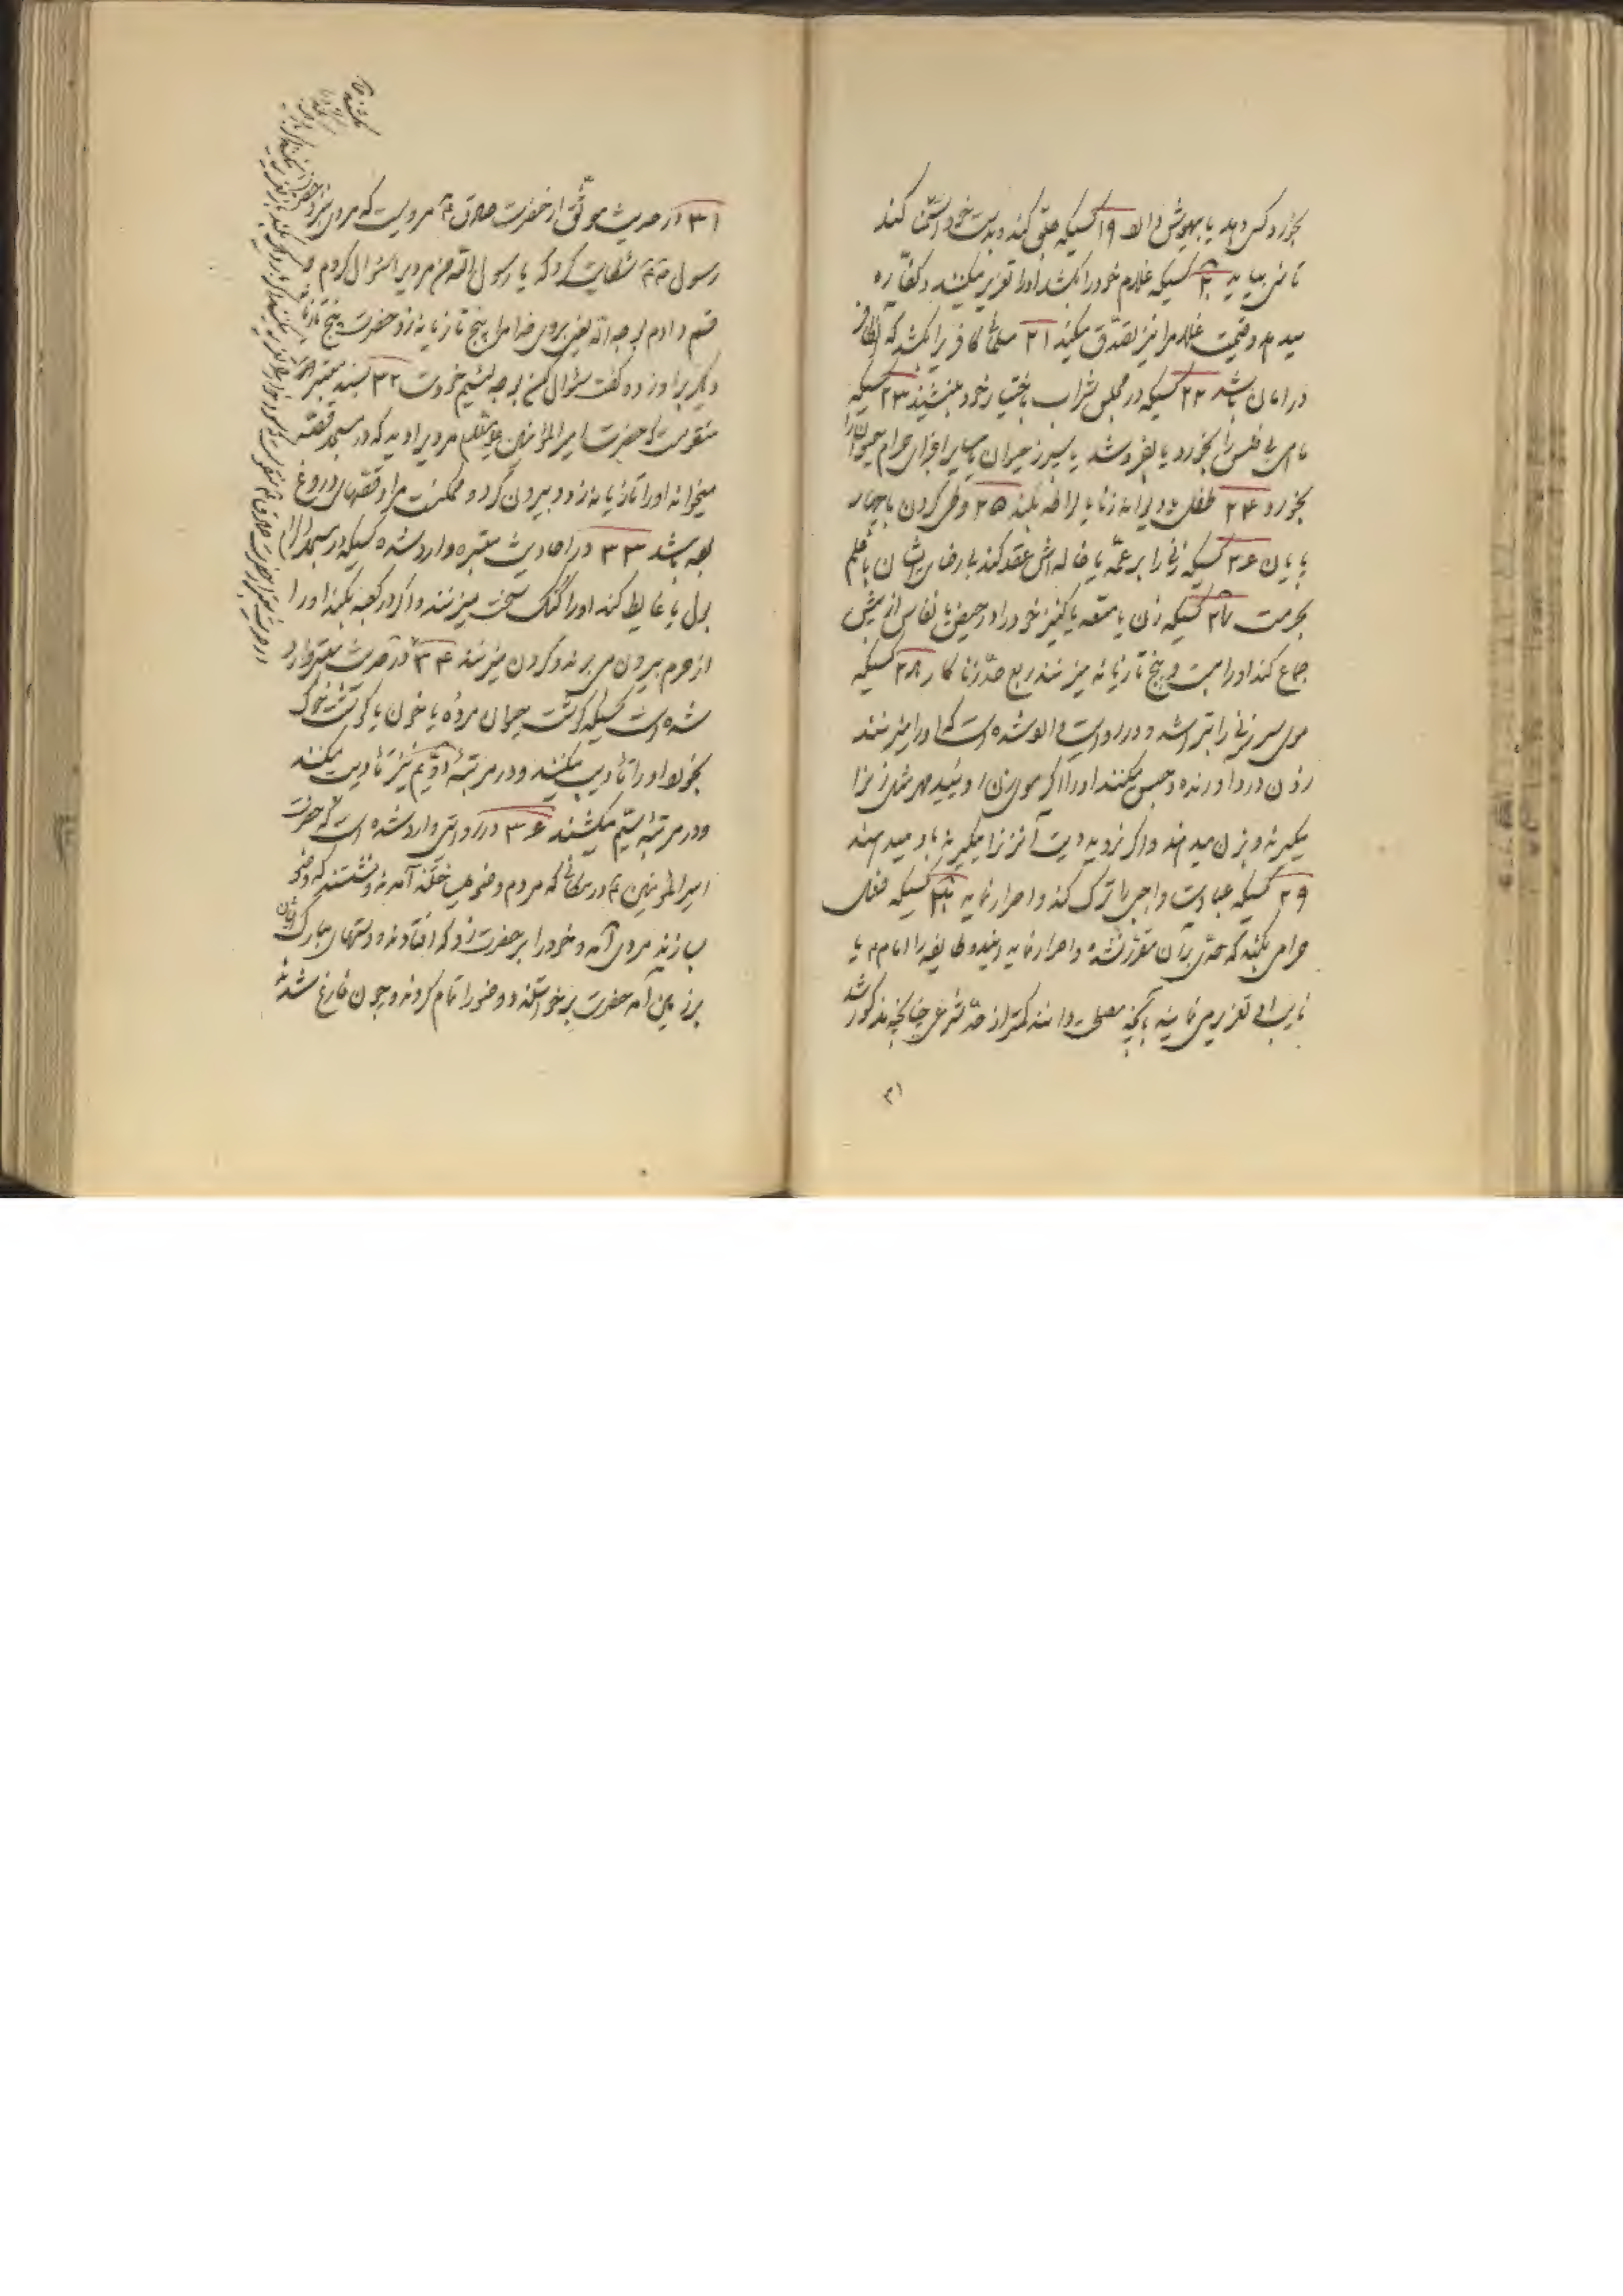 بخورد کس دهد یا بیهوش دارد ۱۹ کسیکه جلق کند و بدست خود استمنا کند
تا منی بیاید ۲۰ کسیکه غلام خود را بکشد او را تعزیر میکنند و کفّاره
میدهد و قیمت غلام را نیز تصدّق میکند ۲۱ مسلمانی کافریرا بکشد که آن کافر
در امان باشد ۲۲ کسیکه در مجلس شراب باختیار خود بنشیند ۲۳ کسیکه
ماهی بی فلس را بخورد یا بفروشد یا سپرز حیوان یا سایر اجزای حرام حیوان را
بخورد ۲۴ طفلی و دیوانه زنا یا لواطه بکند ۲۵ وطی کردن با چهار
پایان ۲۶ کسیکه زنی را بر عمّه یا خاله اش عقد کند بی رضای ایشان با علم
بحرمت ۲۷ کسیکه زن یا متعه یا کنیز خود را در حیض یا نفاس از پیش
جماع کند او را بیست و پنج تازیانه میزنند ربع حدّ زنا کار ۲۸ کسیکه
موی سر زنی را بتراشد و در روایت وارد شده است که او را میزنند
زدن درد آورنده و حبس میکنند او را اگر موی زن روئید مهر مثل زن را
میگیرند و بزن میدهند و اگر نروید دیت آنزن را میگیرند باو میدهند
۲۹ کسیکه عبادت واجبی را ترک کند و اصرار نماید ۳۰ کسیکه فعل
حرامی بکند که حدّی بر آن مقرّر نشده و اصرار نماید این دو طایفه را امام ع یا
نایب او تعزیر می نمایند بآنچه مصلحت دانند کمتر از حدّ شرعی چنانچه مذکور شد
۳۱
۳۱ در حدیث موثّق از حضرت صادق ع مرویست که مردی بنزد حضرت
رسول ص شکایت کرد که یا رسول الله من مردیرا سؤال کردم و
قسم دادم بوجه الله یعنی بروی خدا مرا پنج تازیانه زد حضرت پنج تازیانه
دیگر براو زده گفت سؤال کن بوجه لئیم خودت ۳۲ بسند معتبر
منقولست که حضرت امیر المؤمنین علیه السلام مردیرا دید که در مسجد قصّه
میخواند او را تازیانه زد و بیرون کرد و ممکنست مراد قصّهای دروغ
بوده باشد ۳۳ در احادیث معتبره وارد شده کسیکه در مسجد الحرام
بول یا غایط کند او را کتک سخت میزنند و اگر در کعبه بکند او را
از حرم بیرون می برند و گردن میزنند ۳۴ در حدیث معتبر وارد
شده است کسیکه گوشت حیوان مرده یا خون یا گوشت خوک
بخورد او را تأدیب میکنند و در مرتبهٔ دوّیم نیز تأدیب میکنند
و در مرتبهٔ سیّم میکشند ۳۶ در روایتی وارد شده است که حضرت
امیر المؤمنین ع در مکانی که مردم وضو میساختند آمدند و نشستند که وضو
بسازند مردی آمد و خود را بر حضرت زد که افتادند و دستهای مبارک ایشان
بر زمین آمد حضرت برخواستند و وضو را تمام کردند و چون فارغ شدند